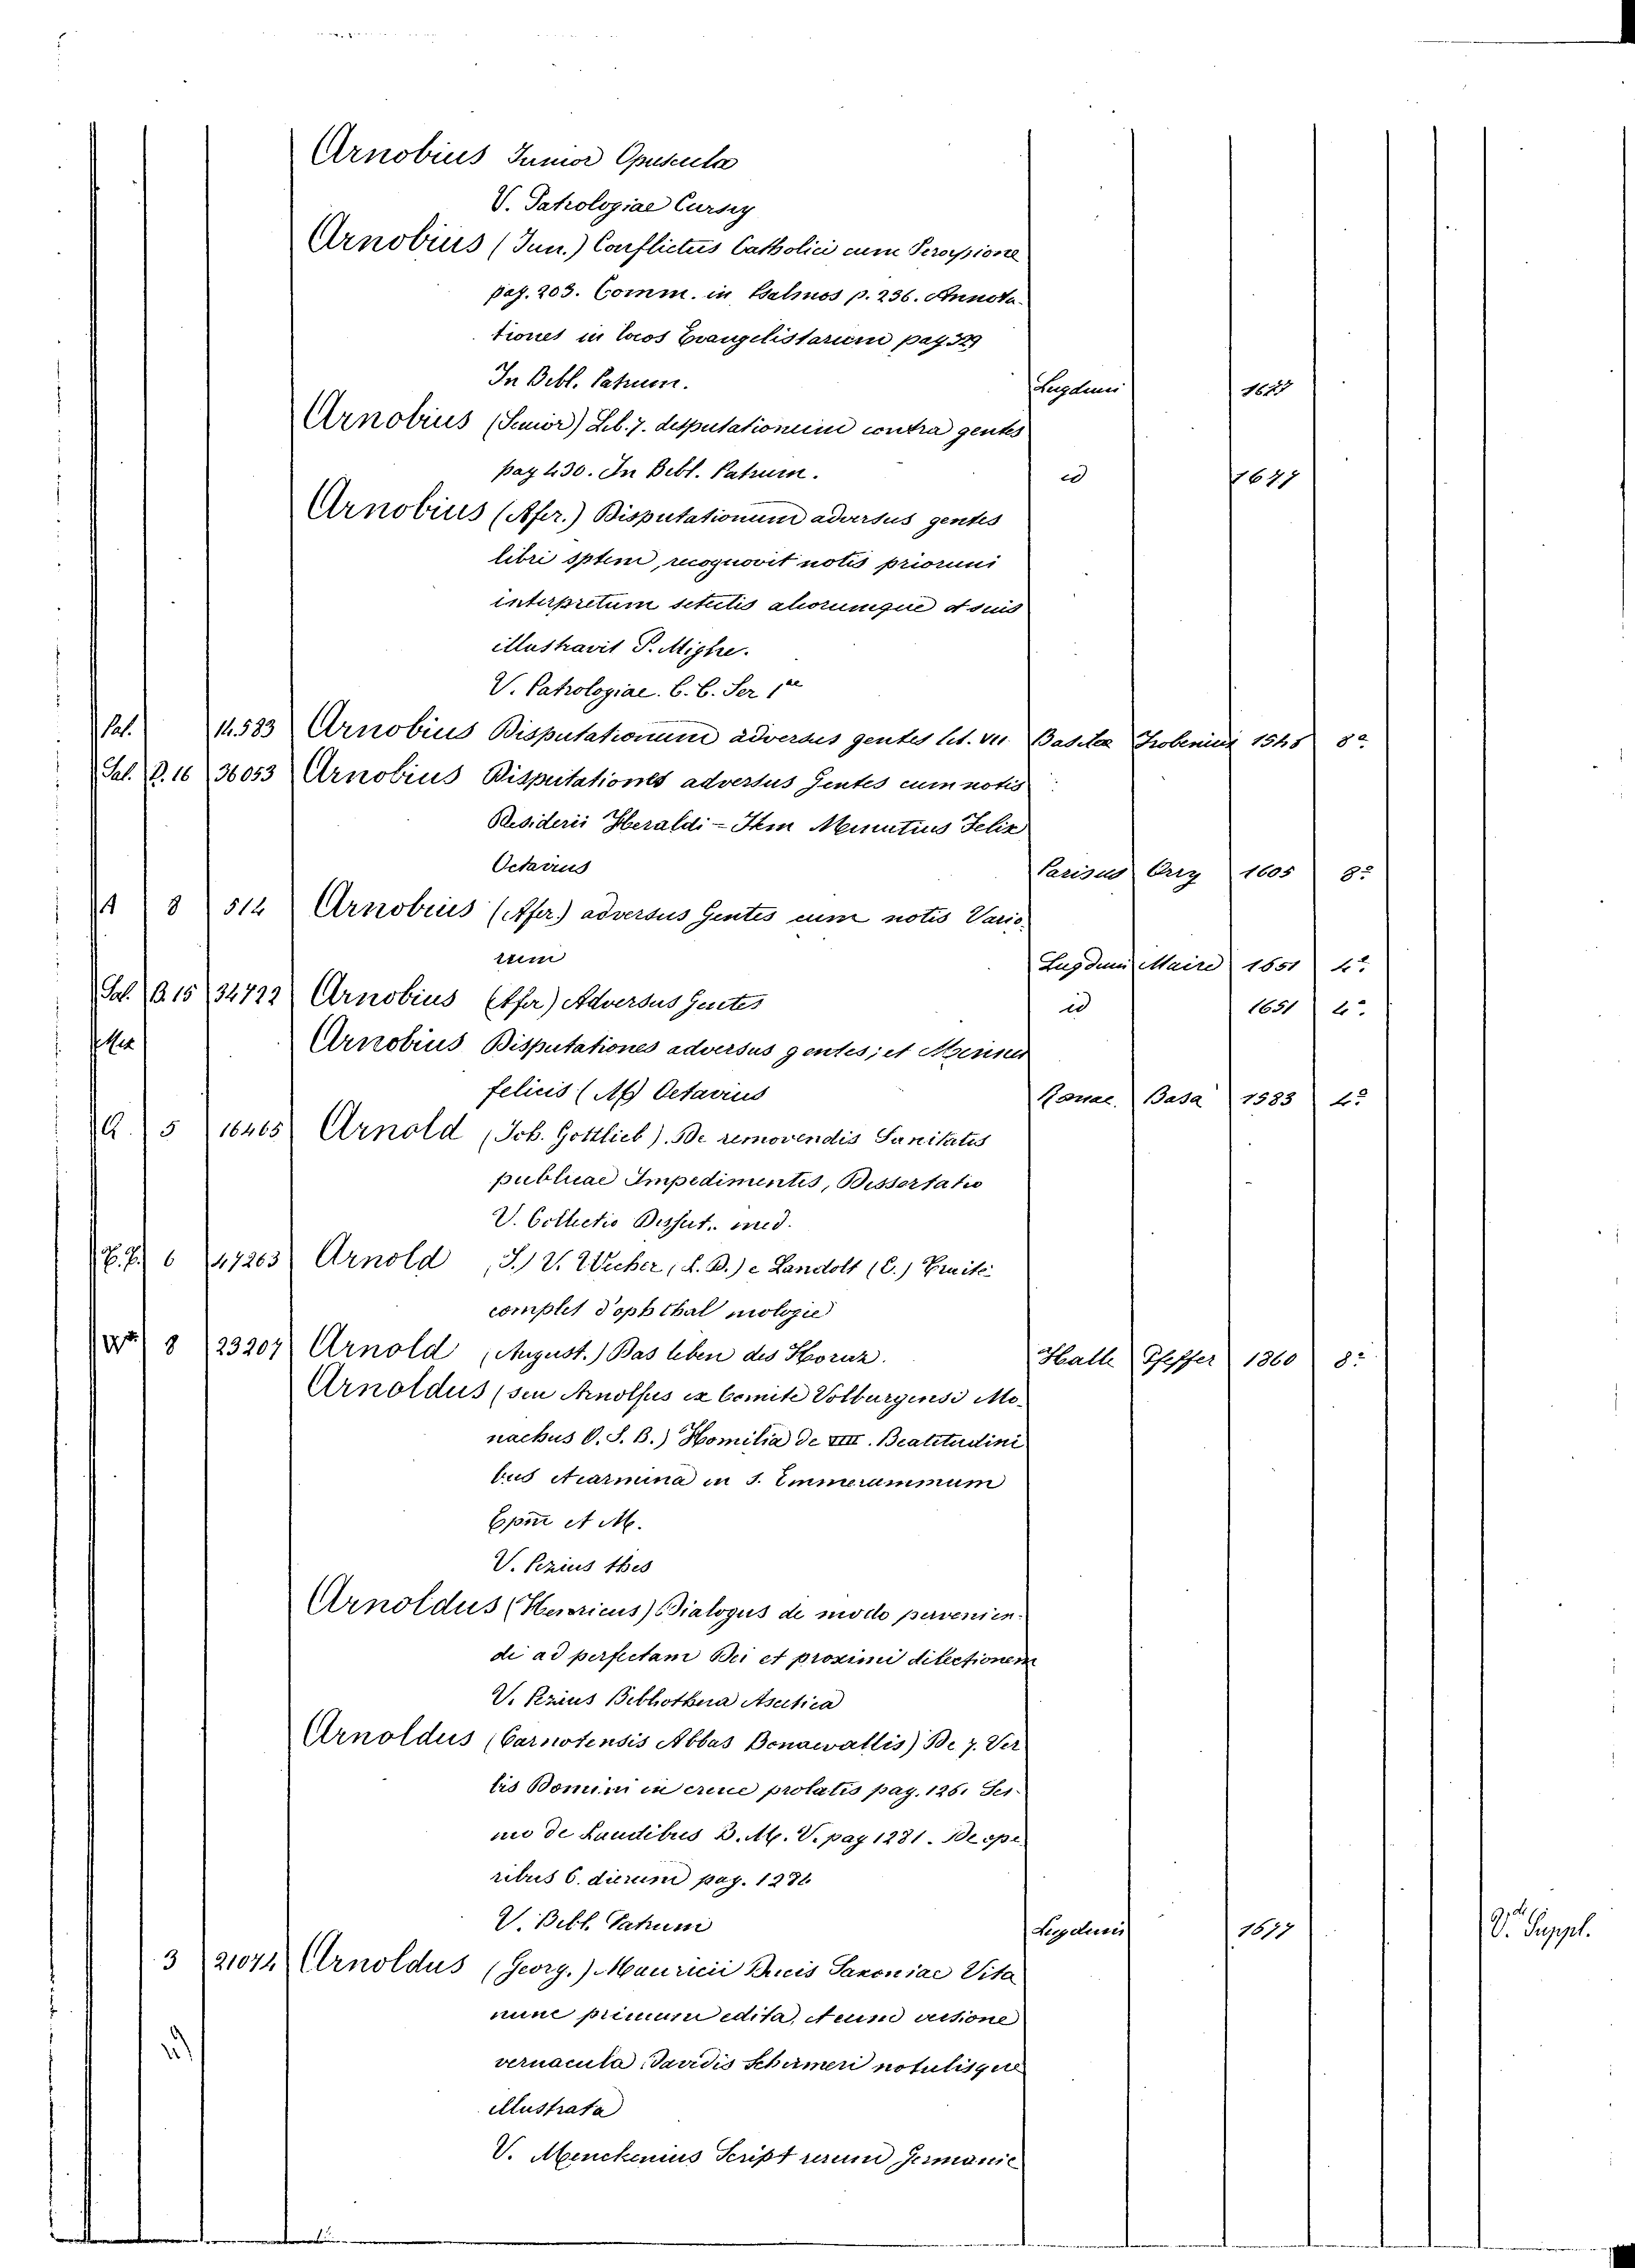 Arnobius Junior Opuscula
V. Patrologiae Cursy
Arnobius (Jun.) Conflictus Catholici cum Serapione
pag. 203. Comm. in Psalmos p. 236. Annota-
tiones in locos Evangelistarum pag 329
In Bibl. Patrum. Lugduni 1677
Arnobius (Senior) Lib. 7. disputationum contra gentes
pag 430. In Bibl. Patrum. id 1677
Arnobius (Afer.) Disputationum adversus gentes
libri septem, recognovit notis priorum
interpretum selectis aliorumque et suis
illustravit P. Migne.
V. Patrologiae. C. C. Ser 1ae
Pal. 14.583 Arnobius Disputationum adversus gentes lib. VII Basilea Frobenius 1548 8º
Sal. D. 16 36053 Arnobius Disputationes adversus Gentes cum notis
Desiderii Heraldi - Item Minutius Felix
Octavius Parisiis Orry 1605 8º
A 8 514 Arnobius (Afer.) adversus Gentes cum notis Vario-
rum Lugduni Maire 1651 4º
Sal. B. 15 34722 Arnobius (Afer) Adversus Gentes id 1651 4º
Arnobius Disputationes adversus gentes; et Minucii
felicis (M) Octavius Romae. Basa 1583 4º
Q. 5 16465 Arnold (Joh. Gottlieb). De removendis Sanitatis
publicae Impedimentis, Dissertatio
V. Collectio Dissert. med.
6 47263 Arnold (J.) V. Wecker, (L. D.) e Landolt (E.) Traité
complet d'ophthalmologie
8 23207 Arnold (August.) Das leben des Horaz. Halle Pfeffer 1860 8º
Arnoldus (seu Arnolfus ex Comite Volburgensi Mo-
nachus O. S. B.) Homilia de VIII. Beatitudini
bus et carmina in S. Emmerammum
Epm et M.
V. Pezius thes
Arnoldus (Henricus) Dialogus de modo pervenien-
di ad perfectam Dei et proximi dilectionem
V. Pezius Bibliotheca Ascetica
Arnoldus (Carnotensis Abbas Bonaevallis) De 7. Ver
bis Domini in cruce prolatis pag. 1261 Ser-
mo de Laudibus B. M. V. pag 1281. De ope
ribus 6. dierum pag. 1284
V. Bibl. Patrum Lugduni 1677 V. Suppl.
3 21074 Arnoldus (Georg.) Mauricii Ducis Saxoniae Vita
nunc primum edita, et cum versione
vernacula Davidis Schirmeri notulisque
illustrata
V. Menckenius Script rerum Germanic